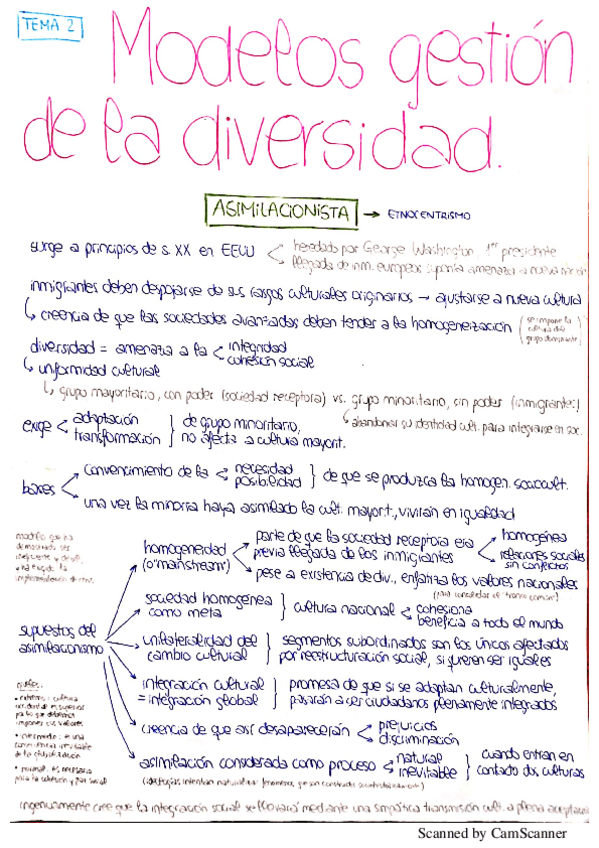 TEMA 2
Modelos gestión
de la diversidad.
ASIMILACIONISTA → ETNOCENTRISMO
surge a principios de s. XX en EEUU < heredado por George Washington 1er presidente
llegada de inm. europeos suponía amenaza a nueva
inmigrantes deben despojarse de sus rasgos culturales originarios → ajustarse a nueva cultura
↳ creencia de que las sociedades avanzadas deben tender a la homogeneización (se impone la
cultura del
grupo dominante)
diversidad = amenaza a la < integridad
cohesión social
↳ uniformidad cultural
↳ grupo mayoritario, con poder (sociedad receptora) vs. grupo minoritario, sin poder (inmigrantes)
↳ abandonar su identidad cult. para integrarse en soc.
exige < adaptación
transformación } de grupo minoritario,
no afecta a cultura mayorit.
bases < convencimiento de la < necesidad
posibilidad } de que se produzca la homogen. sociocult.
una vez la minoría haya asimilado la cult. mayorit., vivirán en igualdad
modelo que ha
demostrado ser
ineficiente y
supuestos del
asimilacionismo
homogeneidad
(o "mainstream") < parte de que la sociedad receptora era
previa llegada de los inmigrantes < homogénea
relaciones sociales
sin conflictos
pese a existencia de div., enfatiza los valores nacionales
(para consolidar el "tronco común")
sociedad homogénea
como meta } cultura nacional < cohesiona
beneficia a todo el mundo
unilateralidad del
cambio cultural } segmentos subordinados son los únicos afectados
por reestructuración social, si quieren ser iguales
integración cultural
= integración global } promesa de que si se adaptan culturalmente,
pasarán a ser ciudadanos plenamente integrados
creencia de que así desaparecerán < prejuicios
discriminación
asimilación considerada como proceso < natural
inevitable } cuando entran en
contacto dos culturas
(ideologías intentan naturalizar fenómenos que son construidos
• extremo: cultura
occidental es superior
por lo que debemos
imponer sus valores
• intermedio: es una
consecuencia inevitable
de la
• normal: es necesario
para la cohesión y paz social
ingenuamente cree que la integración social se llevará mediante una simpática transmisión cult. a plena aceptación
Scanned by CamScanner